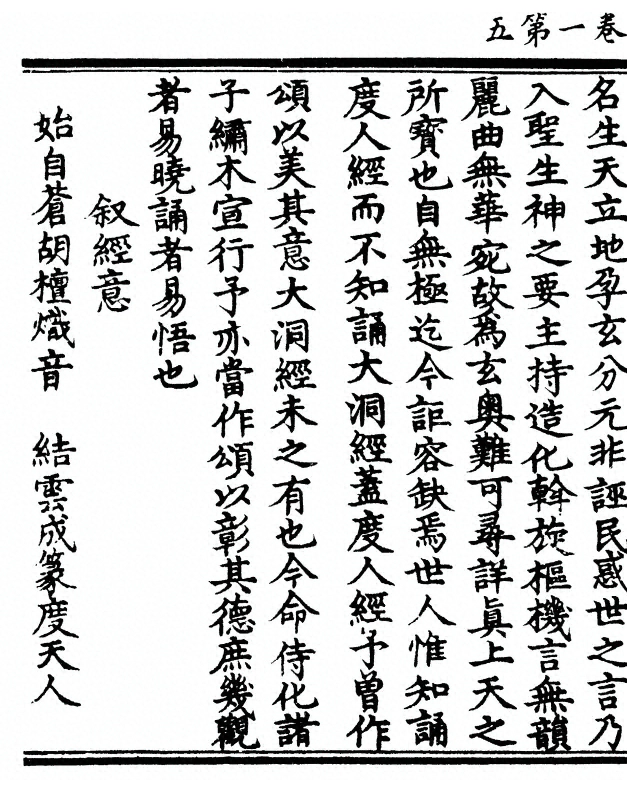 卷一第五
名生天立地孕玄分元非誣民惑世之言乃
入聖生神之要主持造化斡旋樞機言無韻
麗曲無華宛故為玄奥難可尋詳眞上天之
所寳也自無極迄今詎容缺焉世人惟知誦
度人經而不知誦大洞經蓋度人經予曽作
頌以美其意大洞經未之有也今命侍化諸
子繡木宣行予亦當作頌以彰其德庶幾觀
者易曉誦者易悟也
叙經意
始自蒼胡檀熾音　結雲成篆度天人